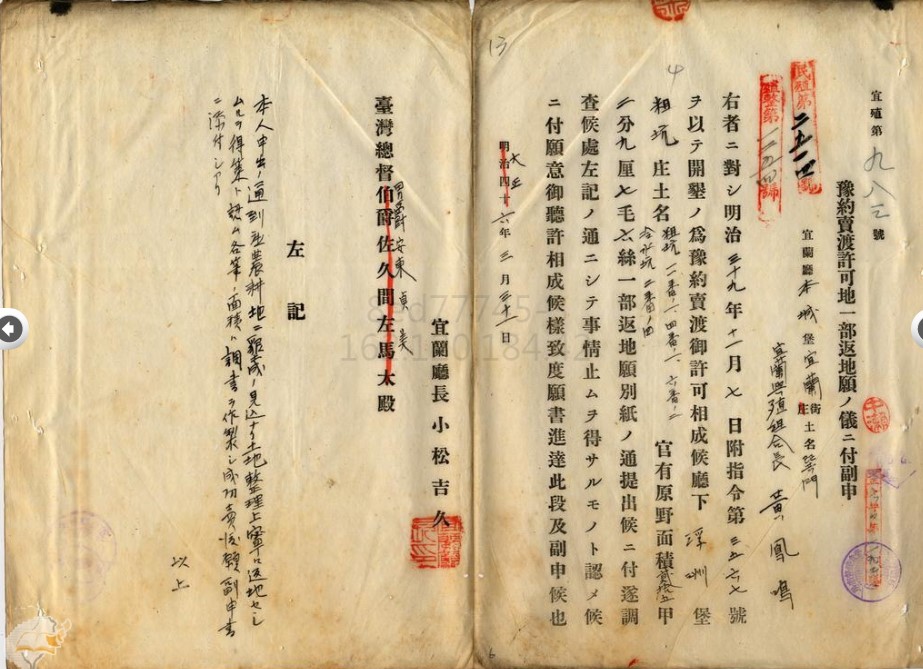 宜殖第九八三號
豫約賣渡許可地一部返地願ノ儀ニ付副申
宜蘭廳本城堡宜蘭街土名艮門
宜蘭興殖組合長 黃鳳鳴
民殖第二五一四號
右者ニ對シ明治三十九年十一月七日附指令第三五六七號
ヲ以テ開墾ノ爲豫約賣渡御許可相成候廳下浮洲堡
粗坑庄土名粗坑 官有原野面積 甲
二分九厘七毛六絲一部返地願別紙ノ通提出候ニ付遂調
查候處左記ノ通ニシテ事情止ムヲ得サルモノト認メ候
ニ付願意御聽許相成候樣致度願書進達此段及副申候也
明治四十六年三月三十一日
大正
宜蘭廳長小松吉久
臺灣總督伯爵佐久間左馬太殿
男爵安東貞美
左記
本人申出ノ通到底農耕地ニ 成ノ見込ナク土地整理上寧ロ返地セシ
ムルヲ得策ト認ム各筆ノ面積ハ調書ヲ作製シ成功賣渡願副申書
ニ添付シアリ
以上
13
4